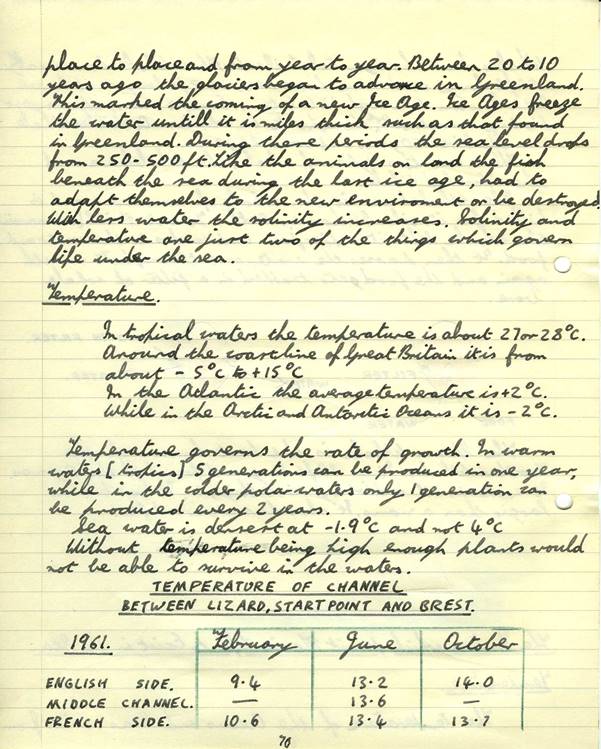 place to place and from year to year. Between 20 to 10
years ago the glaciers began to advance in Greenland.
This marked the coming of a new Ice Age. Ice Ages freeze
the water untill it is miles thick such as that found
in Greenland. During there periods the sea level drops
from 250-500 ft. Like the animals on land the fish
beneath the sea during the last ice age, had to
adapt themselves to the new enviroment or be destroyed.
With less water the solinity increases. Solinity and
temperature are just two of the things which govern
life under the sea.
Temperature.
In tropical waters the temperature is about 27 or 28°C.
Around the coastline of Great Britain it is from
about - 5°C to +15°C
In the Atlantic the average temperature is +2°C.
While in the Arctic and Antarctic Oceans it is -2°C.
Temperature governs the rate of growth. In warm
waters [tropics] 5 generations can be produced in one year,
while in the colder polar waters only 1 generation can
be produced every 2 years.
Sea water is densest at -1.9°C and not 4°C
Without temperature being high enough plants would
not be able to survive in the waters.
TEMPERATURE OF CHANNEL
BETWEEN LIZARD, START POINT AND BREST.
1961. February June October
ENGLISH SIDE. 9.4 13.2 14.0
MIDDLE CHANNEL. — 13.6 —
FRENCH SIDE. 10.6 13.4 13.7
70